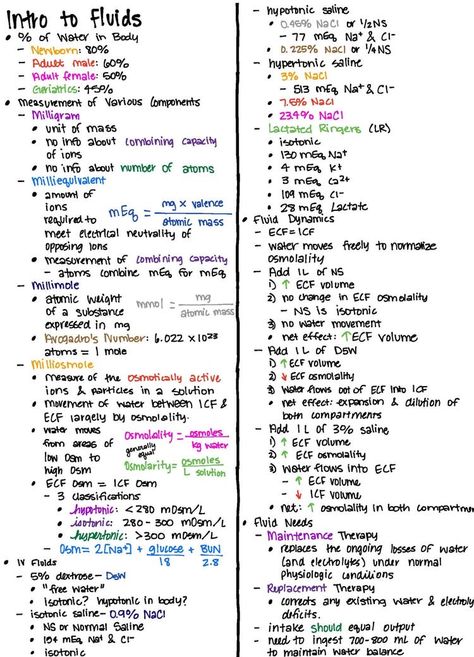 Intro to Fluids
• % of Water in Body
– Newborn: 80%
– Adult male: 60%
– Adult female: 50%
– Geriatrics: 45%
• Measurement of Various Components
– Milligram
• unit of mass
• no info about combining capacity
of ions
• no info about number of atoms
– Milliequivalent
• amount of
ions
required to
meet electrical neutrality of
opposing ions
mEq = mg x valence
atomic mass
• measurement of combining capacity
– atoms combine mEq for mEq
– Millimole
• atomic weight
of a substance
expressed in mg
mmol = mg
atomic mass
• Avogadro's Number: 6.022 x 10²³
atoms = 1 mole
– Milliosmole
• measure of the osmotically active
ions & particles in a solution
• movement of water between ICF &
ECF largely by osmolality.
• water moves
from areas of
low Osm to
high Osm
Osmolality = osmoles
kg water
generally
equal
Osmolarity = osmoles
L solution
• ECF Osm = ICF Osm
– 3 classifications
• hypotonic: < 280 mOsm/L
• isotonic: 280 - 300 mOsm/L
• hypertonic: > 300 mOsm/L
– Osm = 2[Na+] + glucose + BUN
18 2.8
• IV Fluids
– 5% dextrose - D5W
• "free water"
• isotonic? hypotonic in body?
– isotonic saline - 0.9% NaCl
• NS or Normal Saline
• 154 mEq Na+ & Cl-
• isotonic
– hypotonic saline
• 0.45% NaCl or 1/2 NS
– 77 mEq Na+ & Cl-
• 0.225% NaCl or 1/4 NS
– hypertonic saline
• 3% NaCl
– 513 mEq Na+ & Cl-
• 7.5% NaCl
• 23.4% NaCl
– Lactated Ringers (LR)
• isotonic
• 130 mEq Na+
• 4 mEq K+
• 3 mEq Ca2+
• 109 mEq Cl-
• 28 mEq Lactate
• Fluid Dynamics
– ECF = ICF
– water moves freely to normalize
osmolality
– Add 1L of NS
1) ↑ ECF volume
2) no change in ECF osmolality
– NS is isotonic
3) no water movement
• net effect: ↑ ECF volume
– Add 1L of D5W
1) ↑ ECF volume
2) ↓ ECF osmolality
3) water flows out of ECF into ICF
• net effect: expansion & dilution of
both compartments
– Add 1L of 3% saline
1) ↑ ECF volume
2) ↑ ECF osmolality
3) Water flows into ECF
– ↑ ECF volume
– ↓ ICF volume
• net: ↑ osmolality in both compartmen
• Fluid Needs
– Maintenance Therapy
• replaces the ongoing losses of water
(and electrolytes) under normal
physiologic conditions
– Replacement Therapy
• corrects any existing water & electroly
deficits.
– intake should equal output
– need to ingest 700-800 mL of water
to maintain water balance